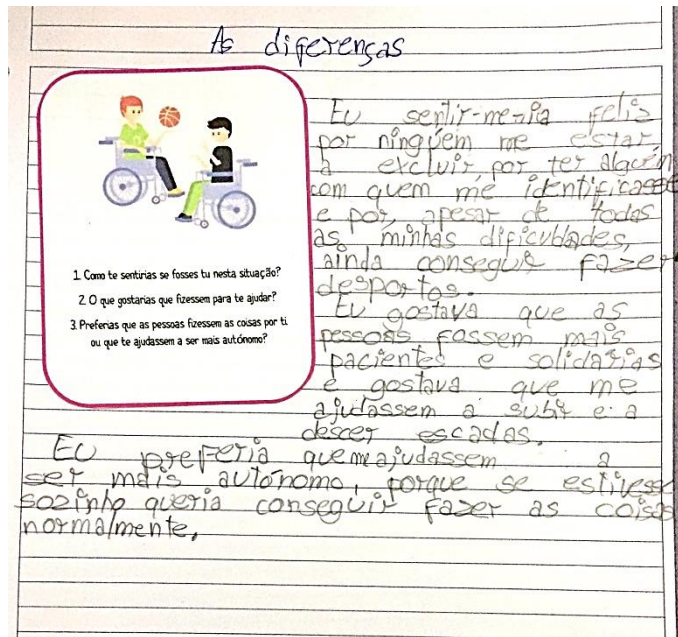 As diferenças
1. Como te sentirias se fosses tu nesta situação?
2. O que gostarias que fizessem para te ajudar?
3. Preferias que as pessoas fizessem as coisas por ti
ou que te ajudassem a ser mais autónomo?
Eu sentir-me-ia feliz
por ninguém me estar
a excluir, por ter alguém
com quem me identificasse
e por, apesar de todas
as minhas dificuldades,
ainda conseguir fazer
desportos.
Eu gostava que as
pessoas fossem mais
pacientes e solidárias
e gostava que me
ajudassem a subir e a
descer escadas.
Eu preferia que me ajudassem a
ser mais autónomo, porque se estivesse
sozinho queria conseguir fazer as coisas
normalmente.